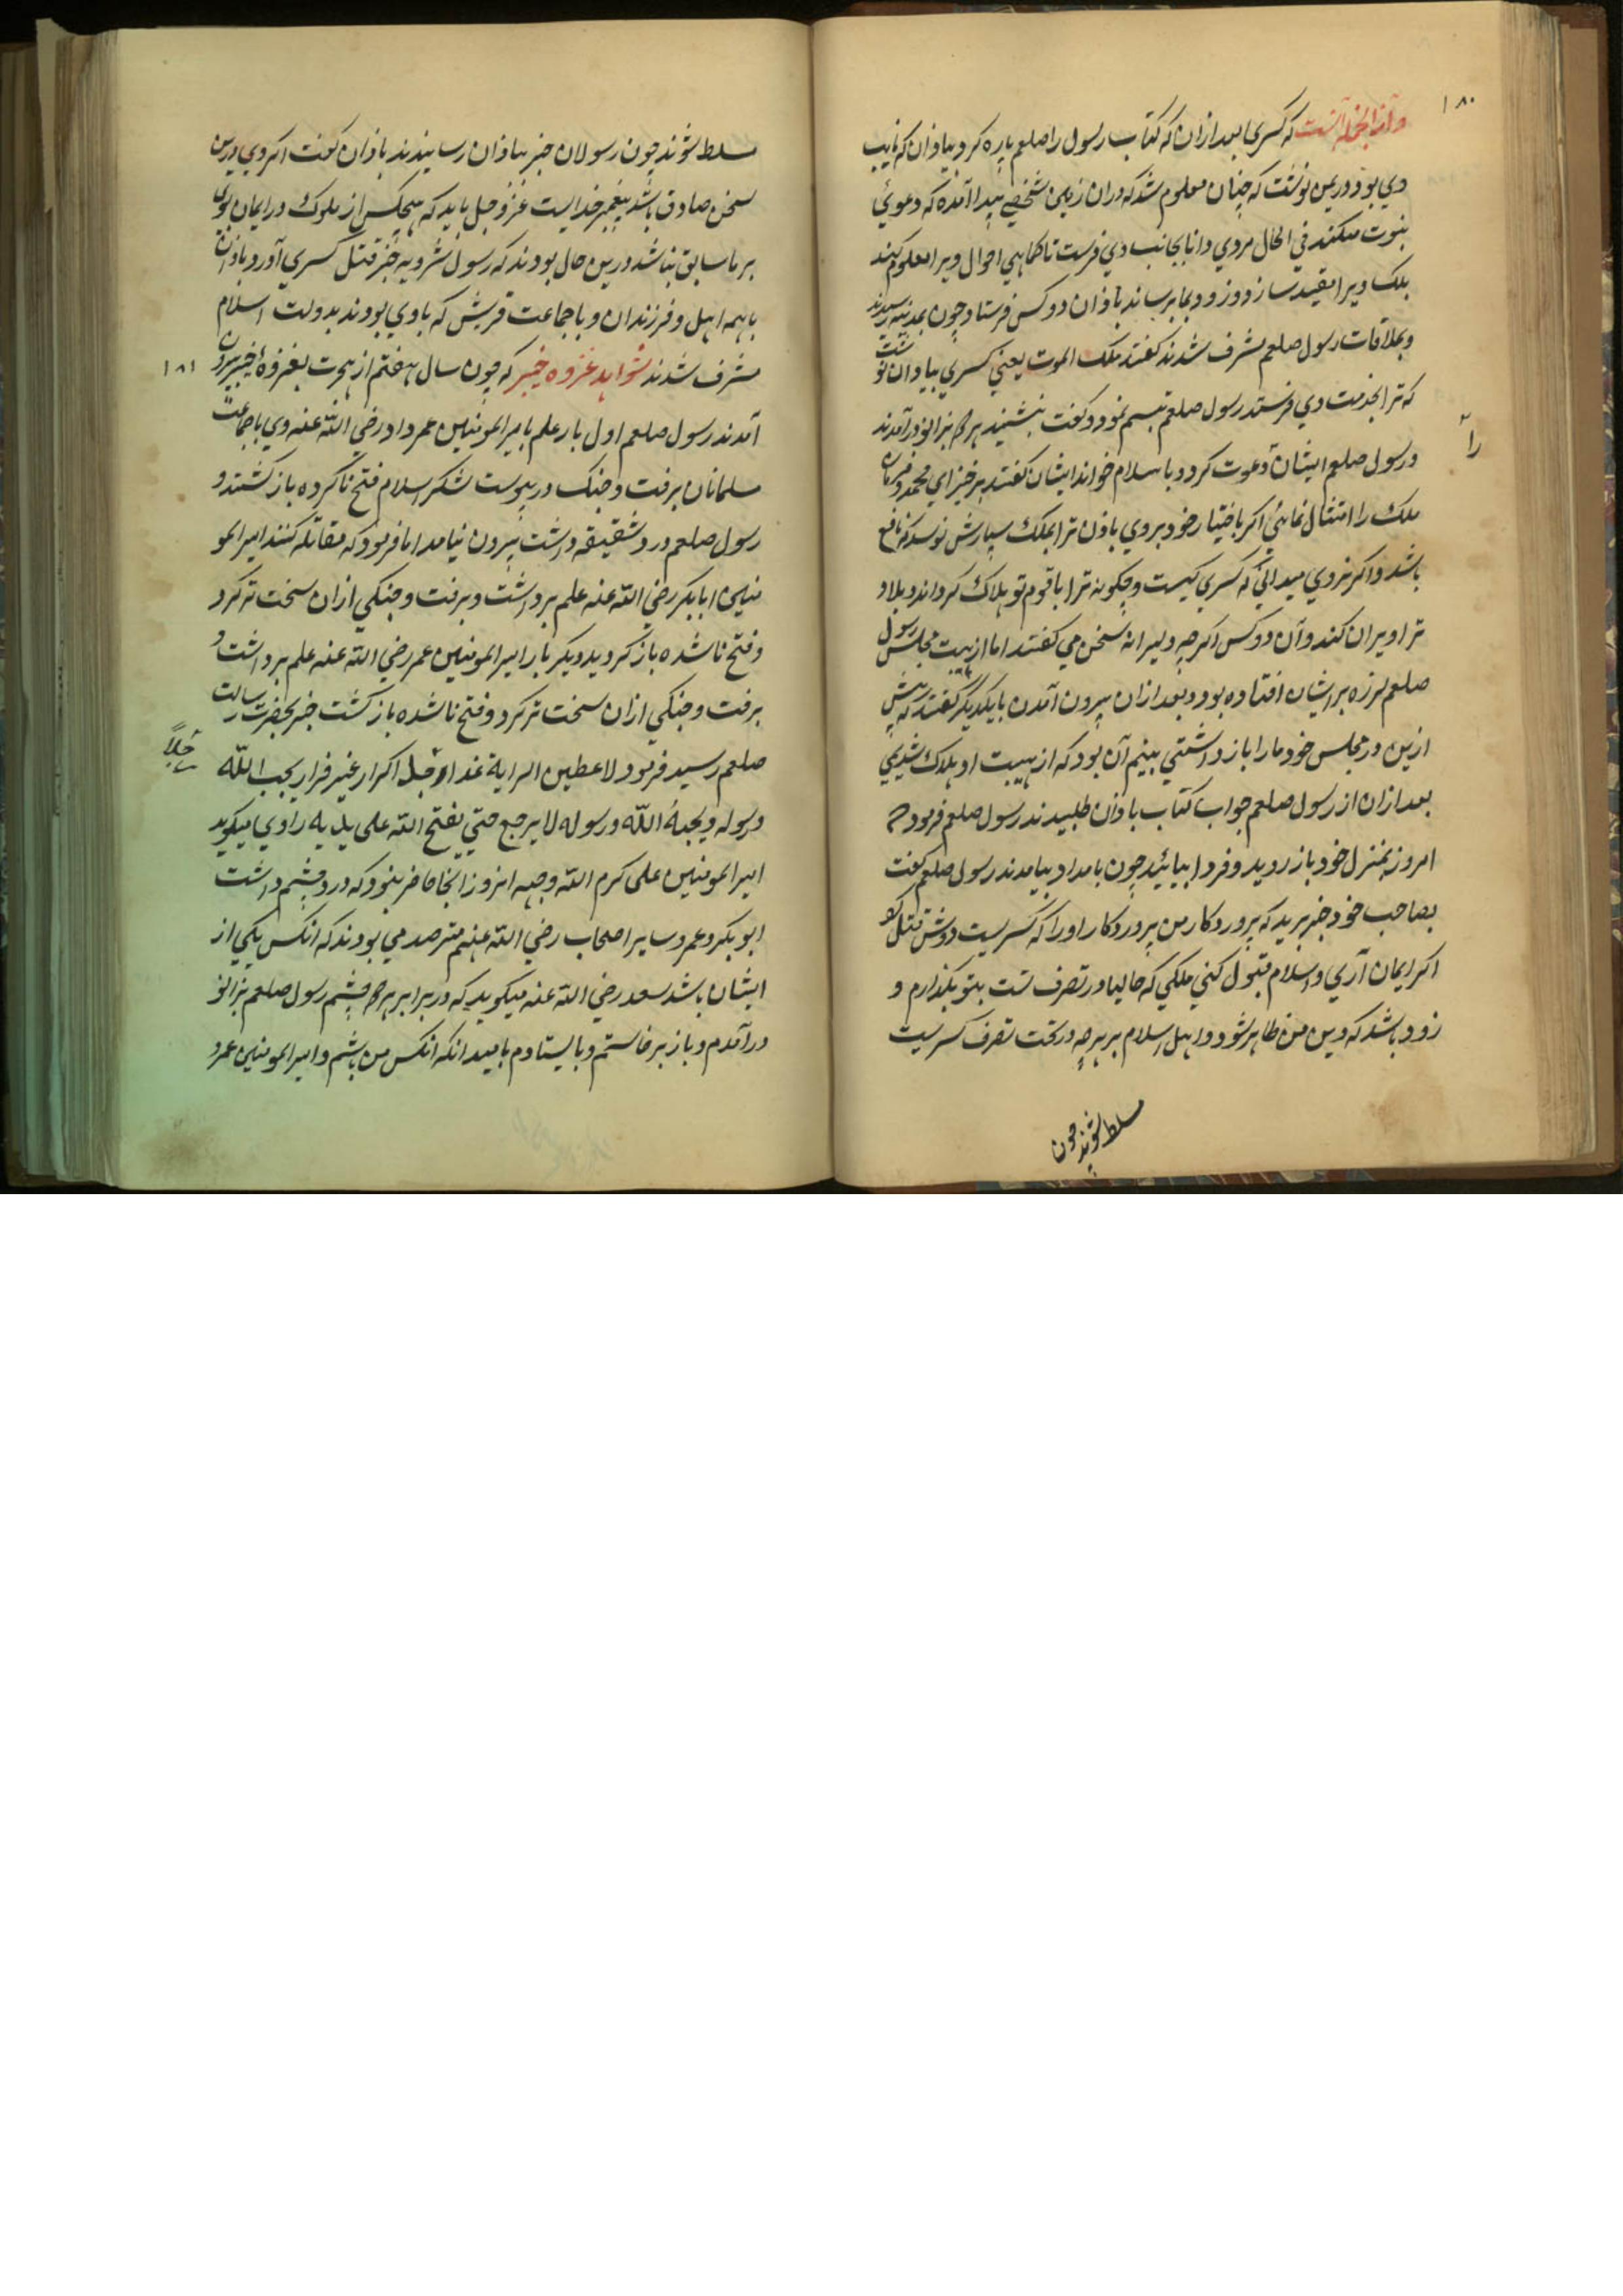 ۱۸۰
وازانجمله آنست که کسری بعد ازان که کتاب رسول را صلعم پاره کرد بباذان که نایب
وي بود در یمن نوشت که چنان معلوم شد که دران زمین شخصي پیدا آمده که دعوئ
نبوت میکند في الحال مردي دانا بجانب وي فرست تا کماهي احوال ویرا معلوم کند
بلک ویرا مقید سازد و زود بما برساند باذان دو کس فرستاد چون بمدینه رسیدند
و بملاقات رسول صلعم مشرف شدند گفتند ملک الموت یعني کسري بباذان نوشت
که ترا بخدمت وي فرستد رسول صلعم تبسم نمود و گفت بنشینید هر دو بزانو در آمدند
و رسول صلعم ایشان دعوت کرد و باسلام خواند ایشان گفتند برخیز اي محمد و فرمان
را
ملک را امتثال نماي اگر باختیار خود بروي باذن ترا بملک سپارش نویسد که نافع
باشد و اگر نروي میداني که کسري کیست و چکونه ترا با قوم تو هلاک گرداند و بلاد
ترا ویران کند و آن دو کس اگرچه دلیرانه سخن مي گفتند اما از هیبت مجلس رسول
صلعم لرزه بر ایشان افتاده بود و بعد ازان بیرون آمدن بایکدیگر گفتند که پیش
ازین در مجلس خود ما را باز داشتي بیم آن بود که از هیبت او هلاک شدیمي
بعد ازان از رسول صلعم جواب کتاب باذان طلبیدند رسول صلعم فرمود که
امروز بمنزل خود باز روید و فردا بیائید چون بامداد بیامدند رسول صلعم گفت
بصاحب خود خبر برید که پروردکار من پروردکار او را که کسریست دوش قتل کرد
اکر ایمان آري و اسلام قبول کني ملکي که حالیا در تصرف تست بتو بگذارم و
زود باشد که دین من ظاهر شود و اهل اسلام بر هرچه در تحت تصرف کسریست
مسلط شوند چون
مسلط شوند چون رسولان خبر بباذان رسانیدند باذان گفت اگر وي درین
سخن صادق باشد پیغمبر خدایست عز و جل باید که هیچکس از ملوک در ایمان بوی
بر ما سابق نباشد درین حال بودند که رسول شرویه خبر قتل کسري آورد باذان
با همه اهل و فرزندان و با جماعت قریش که با وي بودند بدولت اسلام
مشرف شدند شواهد غزوه خیبر که چون سال هفتم از هجرت بغزوهٔ خیبر بیرون
۱۸۱
آمدند رسول صلعم اول بار علم بامیر المومنین عمر داد رضي الله عنه وي با جماعت
مسلمانان برفت و جنک در پیوست لشکر اسلام فتح ناکرده باز گشتند و
رسول صلعم درد شقیقه داشت بیرون نیامد اما فرمود که مقاتله کنند امیر المو
منین ابابکر رضي الله عنه علم برداشت و برفت و جنکي ازان سخت تر کرد
و فتح ناشده باز گردید دیکر بار امیر المومنین عمر رضي الله عنه علم برداشت و
برفت و جنکي ازان سخت تر کرد و فتح ناشده باز کشت خبر بحضرت رسالت
صلعم رسید فرمود لاعطین الرایة غدا رجل اکرار غیر فرار یحب الله
رجلاً
و رسوله و یحبهٔ الله و رسوله لا یرجع حتي یفتح الله علی یدیه راوي میکوید
امیر المومنین علی کرم الله وجهه انروز آنجا حاضر نبود که درد چشم داشت
ابو بکر و عمر و سایر اصحاب رضي الله عنهم مترصد مي بودند که آنکس یکي از
ایشان باشد سعد رضي الله عنه میکوید که در برابر هر دو چشم رسول صلعم بزانو
در آمدم و باز برخاستم و بایستادم بامید انکه انکس من باشم و امیر المومنین عمر